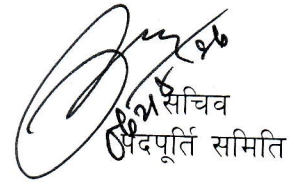 सचिव
पदपूर्ति समिति